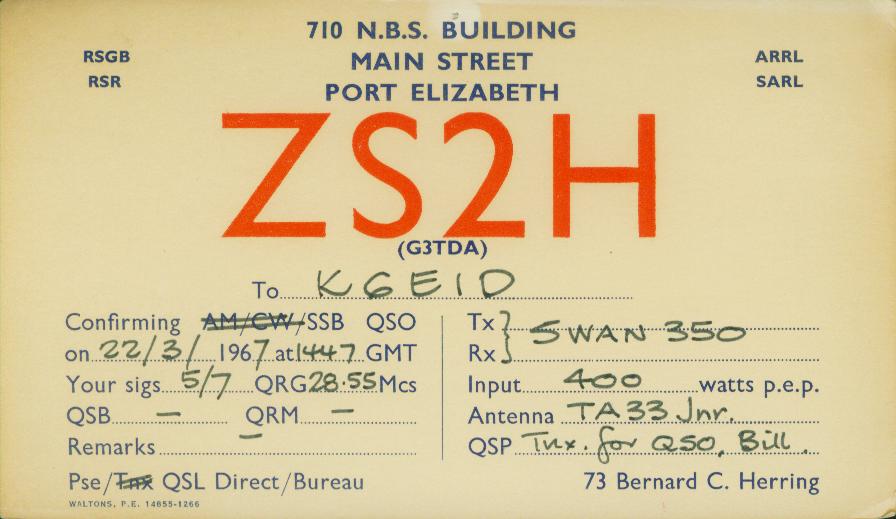 710 N.B.S. BUILDING
MAIN STREET
PORT ELIZABETH
RSGB
RSR
ARRL
SARL
ZS2H
(G3TDA)
To K6EID
Confirming AM/CW/SSB QSO
on 22/3/ 1967 at 1447 GMT
Your sigs 5/7 QRG 28.55 Mcs
QSB — QRM —
Remarks —
Pse/Tnx QSL Direct/Bureau
WALTONS, P.E. 14655-1266
Tx } SWAN 350
Rx
Input 400 watts p.e.p.
Antenna TA33 Jnr.
QSP Tnx. for QSO, Bill.
73 Bernard C. Herring